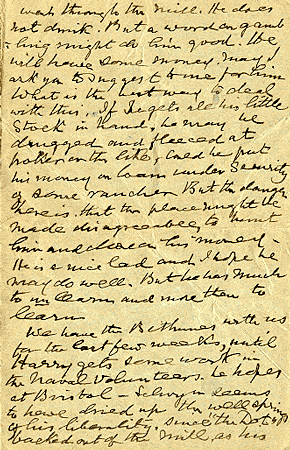 went through the mill. He does
not drink. But a word on gamb
-ling might do him good. He
will have some money. May I
ask you to suggest to me for him
what is the best way to deal
with this. If he gets all his little
stock in hand, he may be
drugged and fleeced at
poker or the like, could he put
his money on loan under Security
of some rancher. But the danger
there is that the place might be
made disagreeable to
him and his money -
He is a nice lad and I hope he
may do well. But he has much
to unlearn and more then to
learn
We have the Bethunes with us
for the last few weeks, until
Harry gets some work in
the Naval Volunteers. he hopes
at Bristol - Selwyn seems
to have dried up the well spring
of his liberality, since the
backed out of the Mill, as his